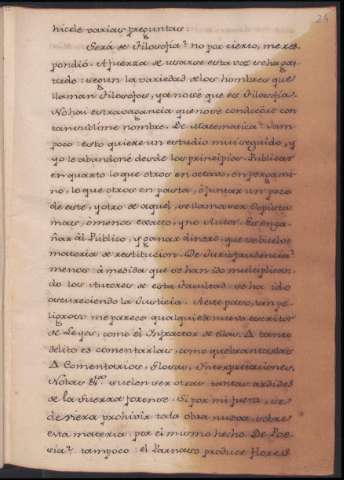 24
hicele varias preguntas.
Será de Filosofia? no por cierto, me res-
pondió. A fuerza de usarse esta voz se ha gas-
tado: segun la variedad de los hombres que
llaman Filosofos, ya no se que es Filosofia.
No hai extravagancia que no se condecore con
tan sublime nombre. De Matematica? Tam
poco: esto quiere un estudio mui seguido, y
yo le abandoné desde los principios. Publicar
en quarto lo que otros en octavo, en pergami-
no, lo que otros en pasta, ó juntar un poco
de este, y otro de aquel, se llama ser Copista
mas, ó menos exacto, y no Autor. Es enga-
ñar al Publico, y ganar dinero, que se buelve
materia de restitucion. De Jurisprudencia?
menos: á medida que se han ido multiplican-
do los Autores de esta facultad se ha ido
oscureciendo la Justicia. A este paso, tan pe-
ligroso me parece qualquiera nuevo escritor
de Leyes, como el Infractor de ellas. A tanto
delito es comentarlas, como quebrantarlas
A Comentarios, Glosas, Interpretaciones,
Notas &c. suelen ser otros tantos ardides
de la Guerra forense. Si por mi fuera, se
debiera prohivir toda obra nueva sobre
esta materia por el mismo hecho. De Poe-
sia? tampoco: el Parnaso produce flores